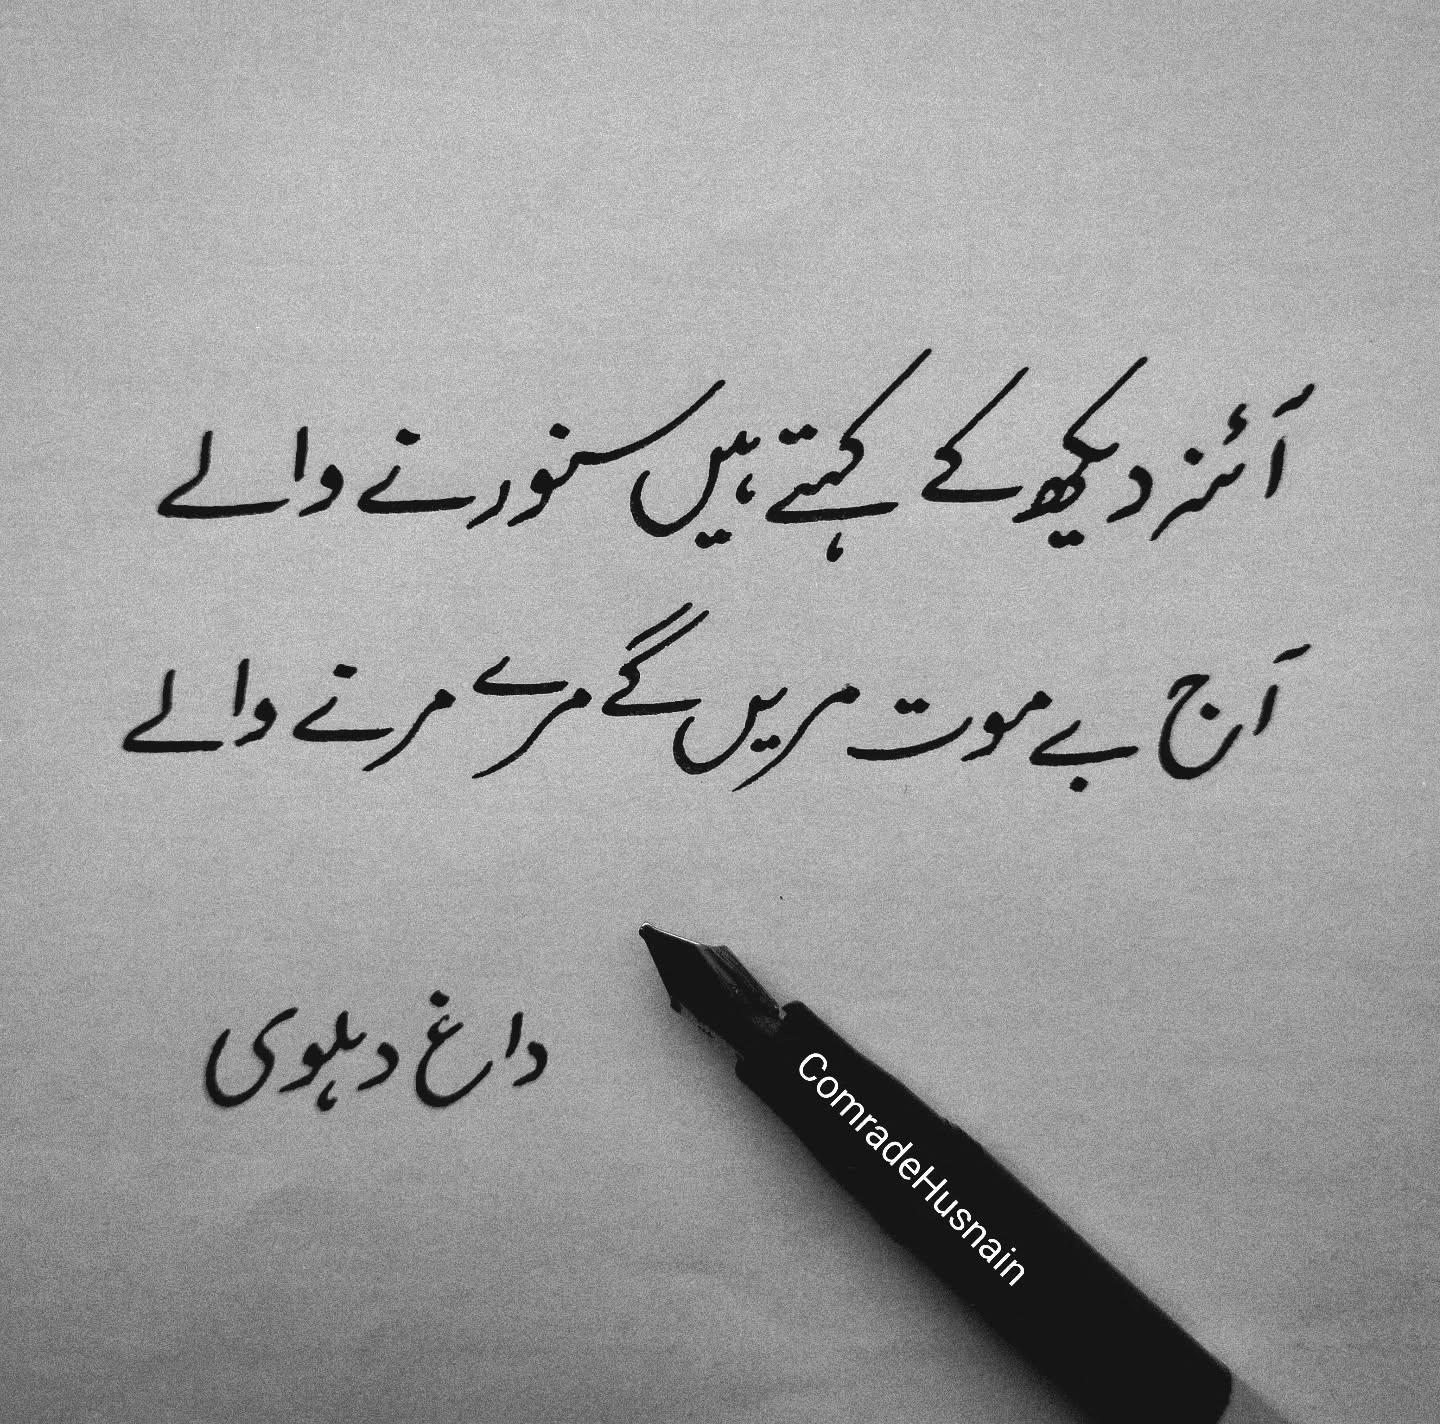 آئنہ دیکھ کے کہتے ہیں سنورنے والے
آج بے موت مریں گے مرے مرنے والے
داغ دہلوی
ComradeHusnain